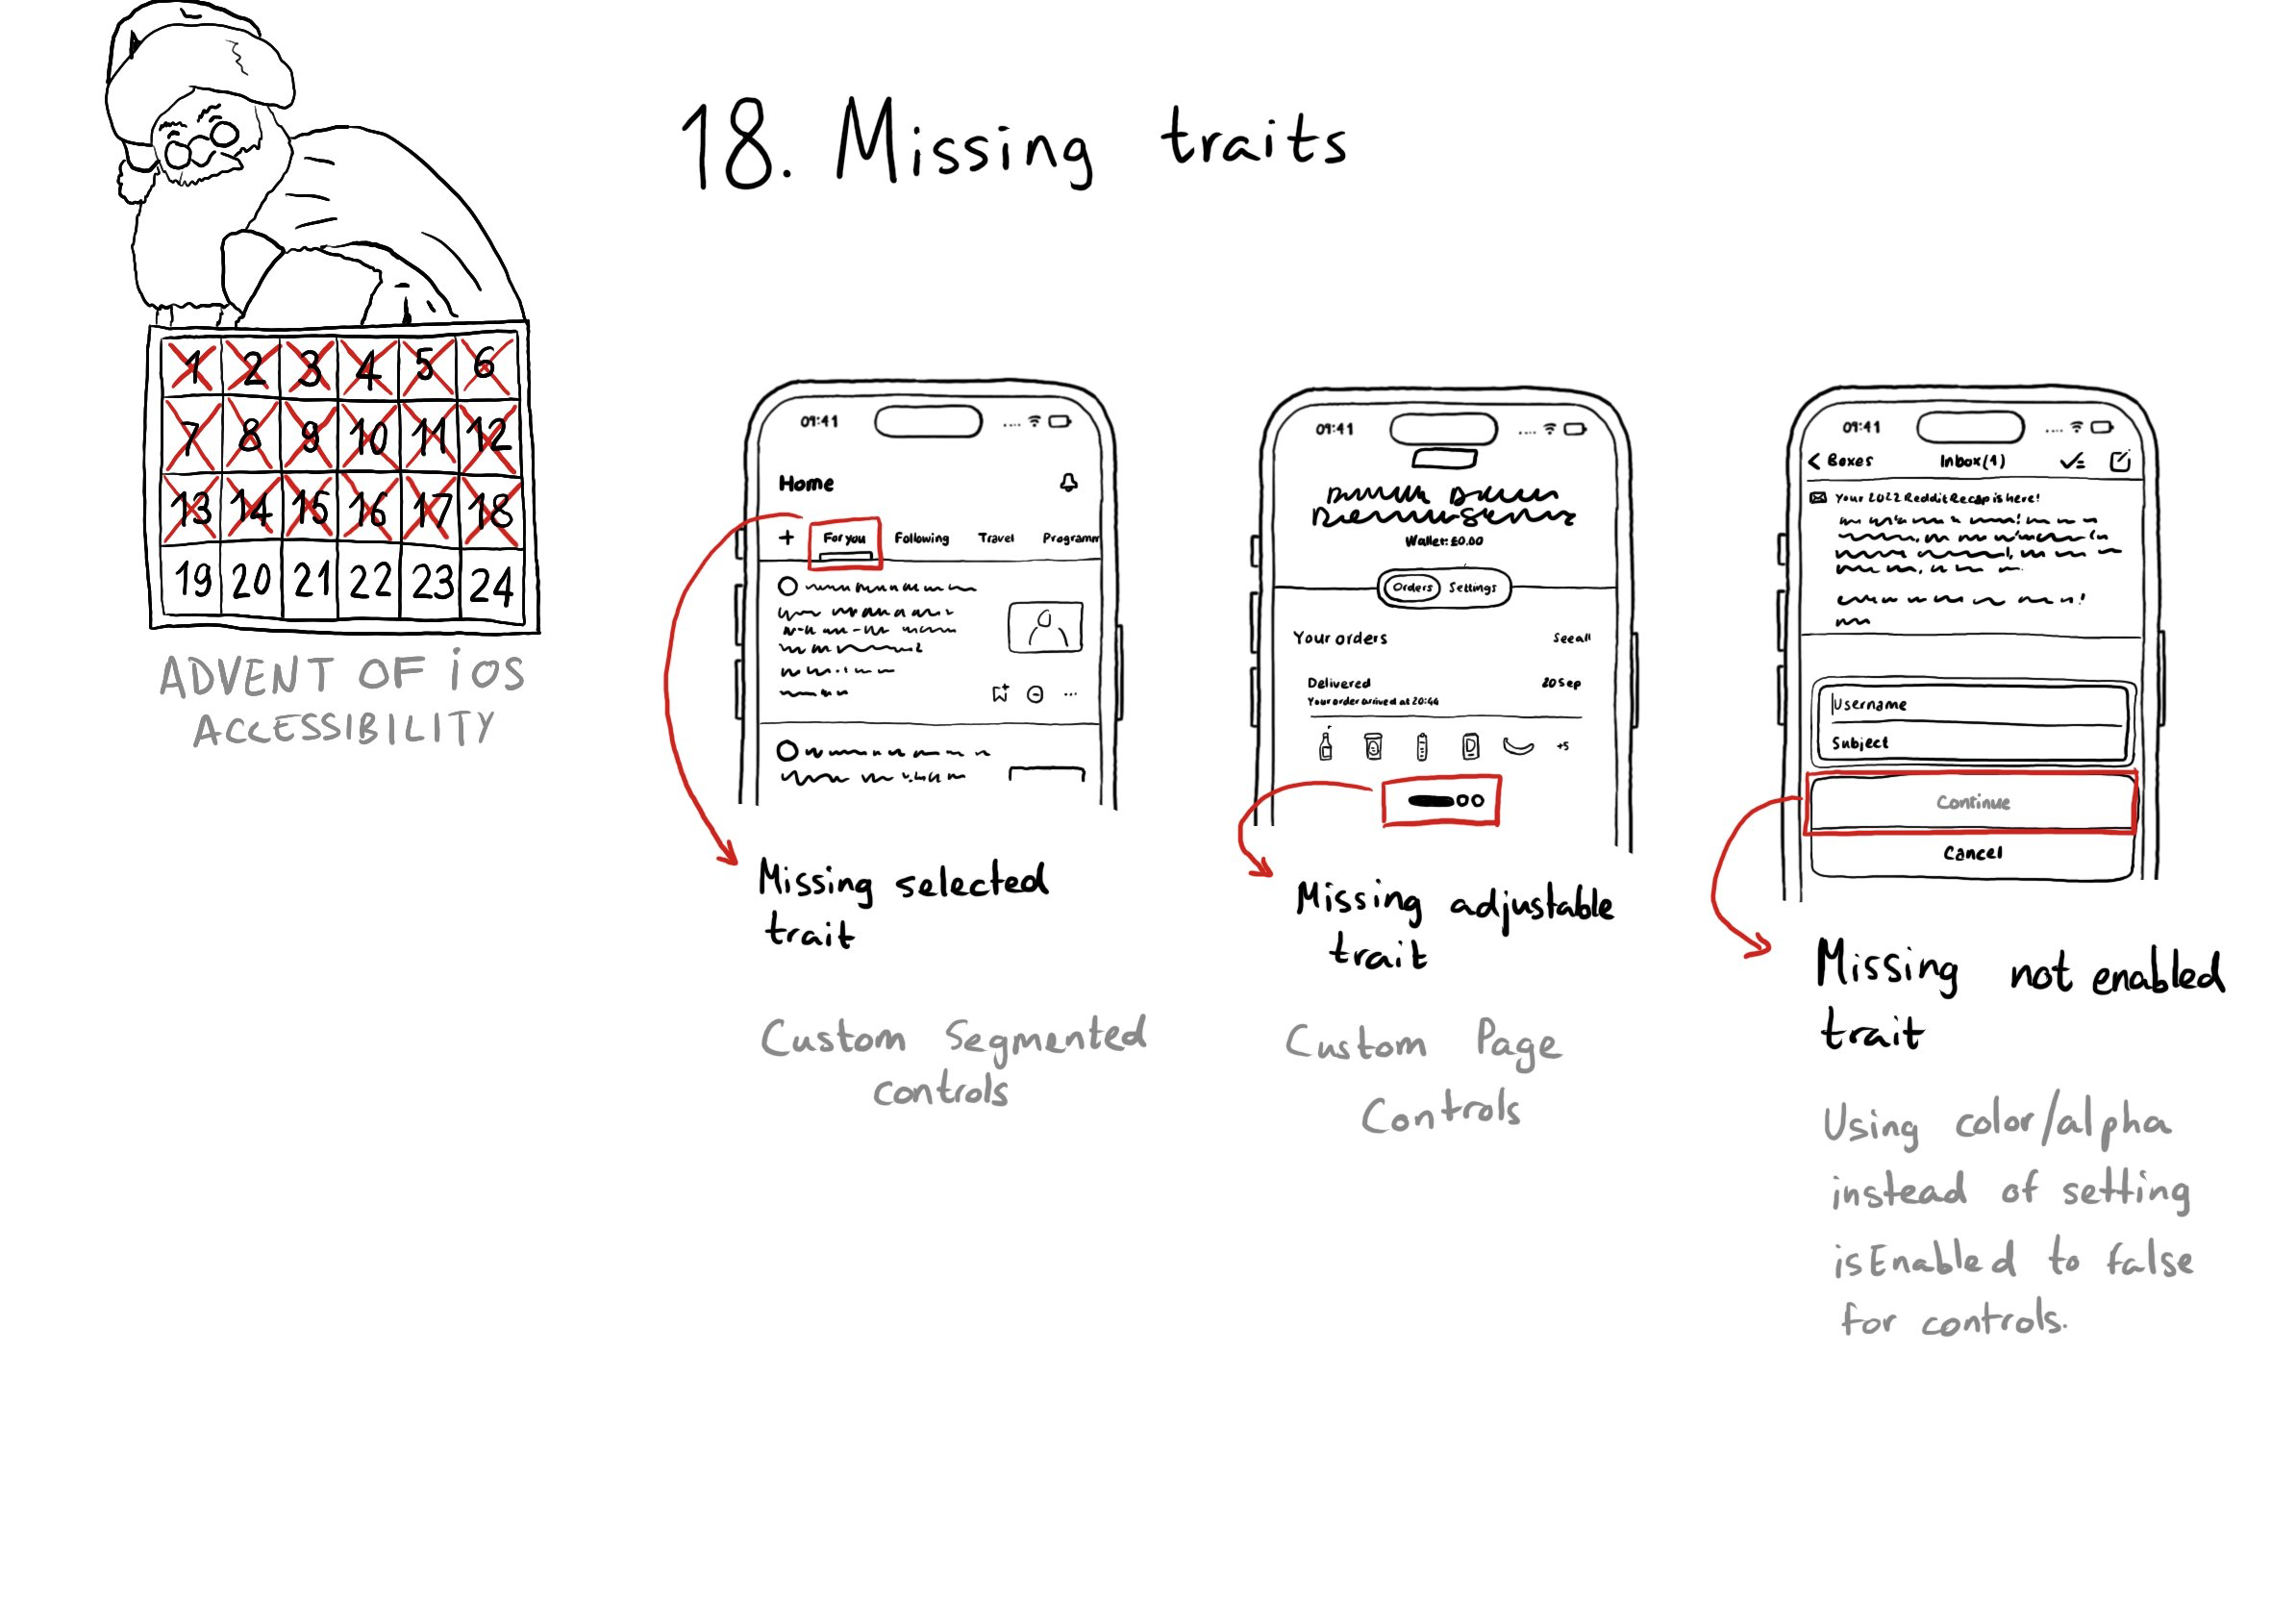 18. Missing traits
1 2 3 4 5 6
7 8 9 10 11 12
13 14 15 16 17 18
19 20 21 22 23 24
ADVENT OF iOS
ACCESSIBILITY
09:41
Home
+ For you Following Travel Programm
Missing selected
trait
Custom Segmented
controls
09:41
Wallet: £0.00
Orders Settings
Your orders See all
Delivered 20 Sep
Your order arrived at 20:44
+5
Missing adjustable
trait
Custom Page
Controls
09:41
< Boxes Inbox (1)
Your 2022 Reddit Recap is here!
Username
Subject
Continue
Cancel
Missing not enabled
trait
Using color/alpha
instead of setting
isEnabled to false
for controls.